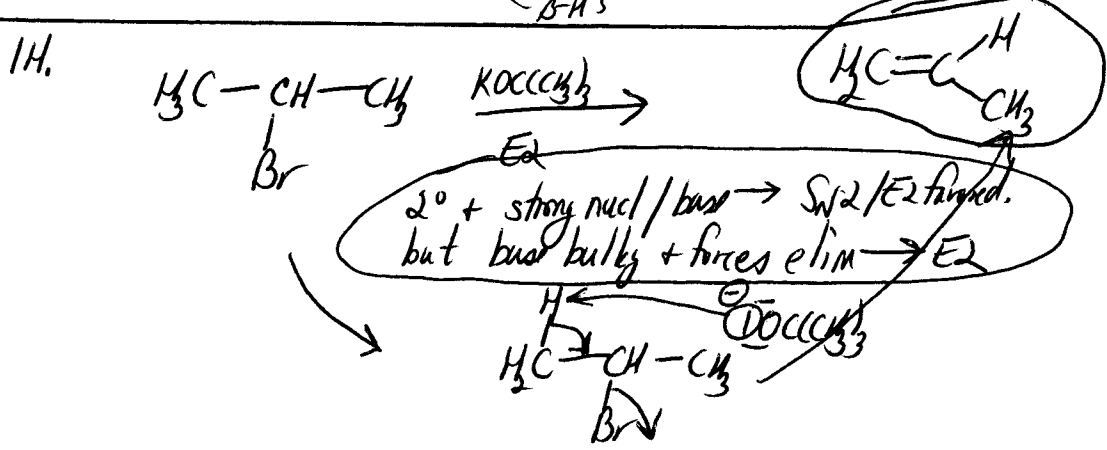 β-H's
1H.
H3C—CH—CH3
Br
KOC(CH3)3
E2
H2C=C
H
CH3
2° + strong nucl/base → SN2/E2 favored.
but base bulky + forces elim → E2
H
⊖
OC(CH3)3
H2C—CH—CH3
Br